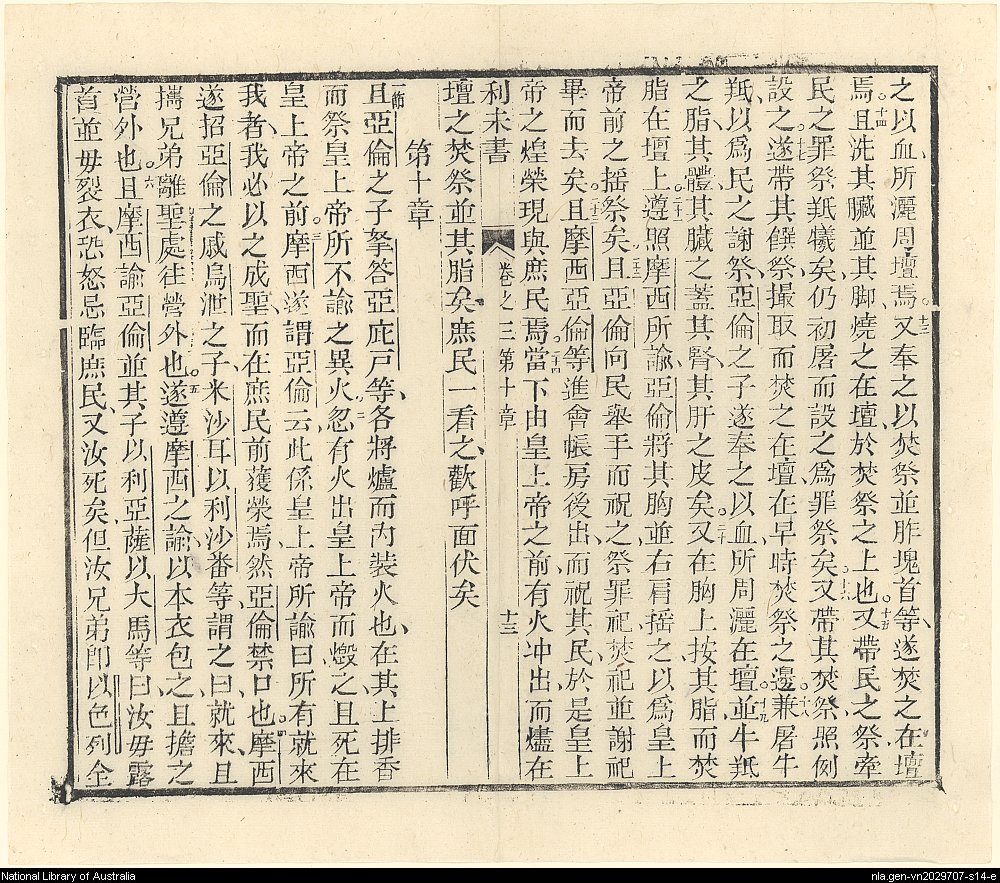 之以血所灑周壇焉。十三又奉之以焚祭並胙塊首等、遂焚之在壇
焉。十四且洗其臟並其脚燒之在壇於焚祭之上也。十五又帶民之祭牽
民之罪祭羝犧矣、仍初屠而設之爲罪祭矣。十六又帶其焚祭、照例
設之。十七遂帶其饌祭、撮取而焚之在壇、在早時焚祭之邊。十八兼屠牛
羝、以爲民之謝祭、亞倫之子遂奉之以血所周灑在壇。十九並牛羝
之脂、其體、其臟之蓋其腎、其肝之皮矣。二十又在胸上按其脂、而焚
脂在壇上。二十一遵照摩西所諭、亞倫將其胸並右肩搖之以爲皇上
帝前之搖祭矣。二十二且亞倫向民舉手而祝之、祭罪祀、焚祀並謝祀
畢而去矣。二十三且摩西亞倫等進會帳房後出、而祝其民、於是皇上
帝之煌榮現與庶民焉。二十四當下由皇上帝之前、有火冲出、而燼在
利未書 卷之三第十章 十三
壇之焚祭並其脂矣、庶民一看之、歡呼面伏矣
第十章
一節且亞倫之子拏答亞庇戸等、各將爐而內裝火也、在其上排香
而祭皇上帝所不諭之異火。二忽有火出皇上帝而燬之、且死在
皇上帝之前。三摩西遂謂亞倫云、此係皇上帝所諭曰、所有就來
我者、我必以之成聖、而在庶民前獲榮焉、然亞倫禁口也。四摩西
遂招亞倫之戚烏泄之子、米沙耳以利沙番等、謂之曰、就來、且
攜兄弟離聖處往營外也。五遂遵摩西之諭、以本衣包之、且擔之
營外也。六且摩西諭亞倫並其子以利亞薩以大馬等曰、汝毋露
首並毋裂衣、恐怒忌臨庶民、又汝死矣、但汝兄弟卽以色列全
National Library of Australia
nla.gen-vn2029707-s14-e